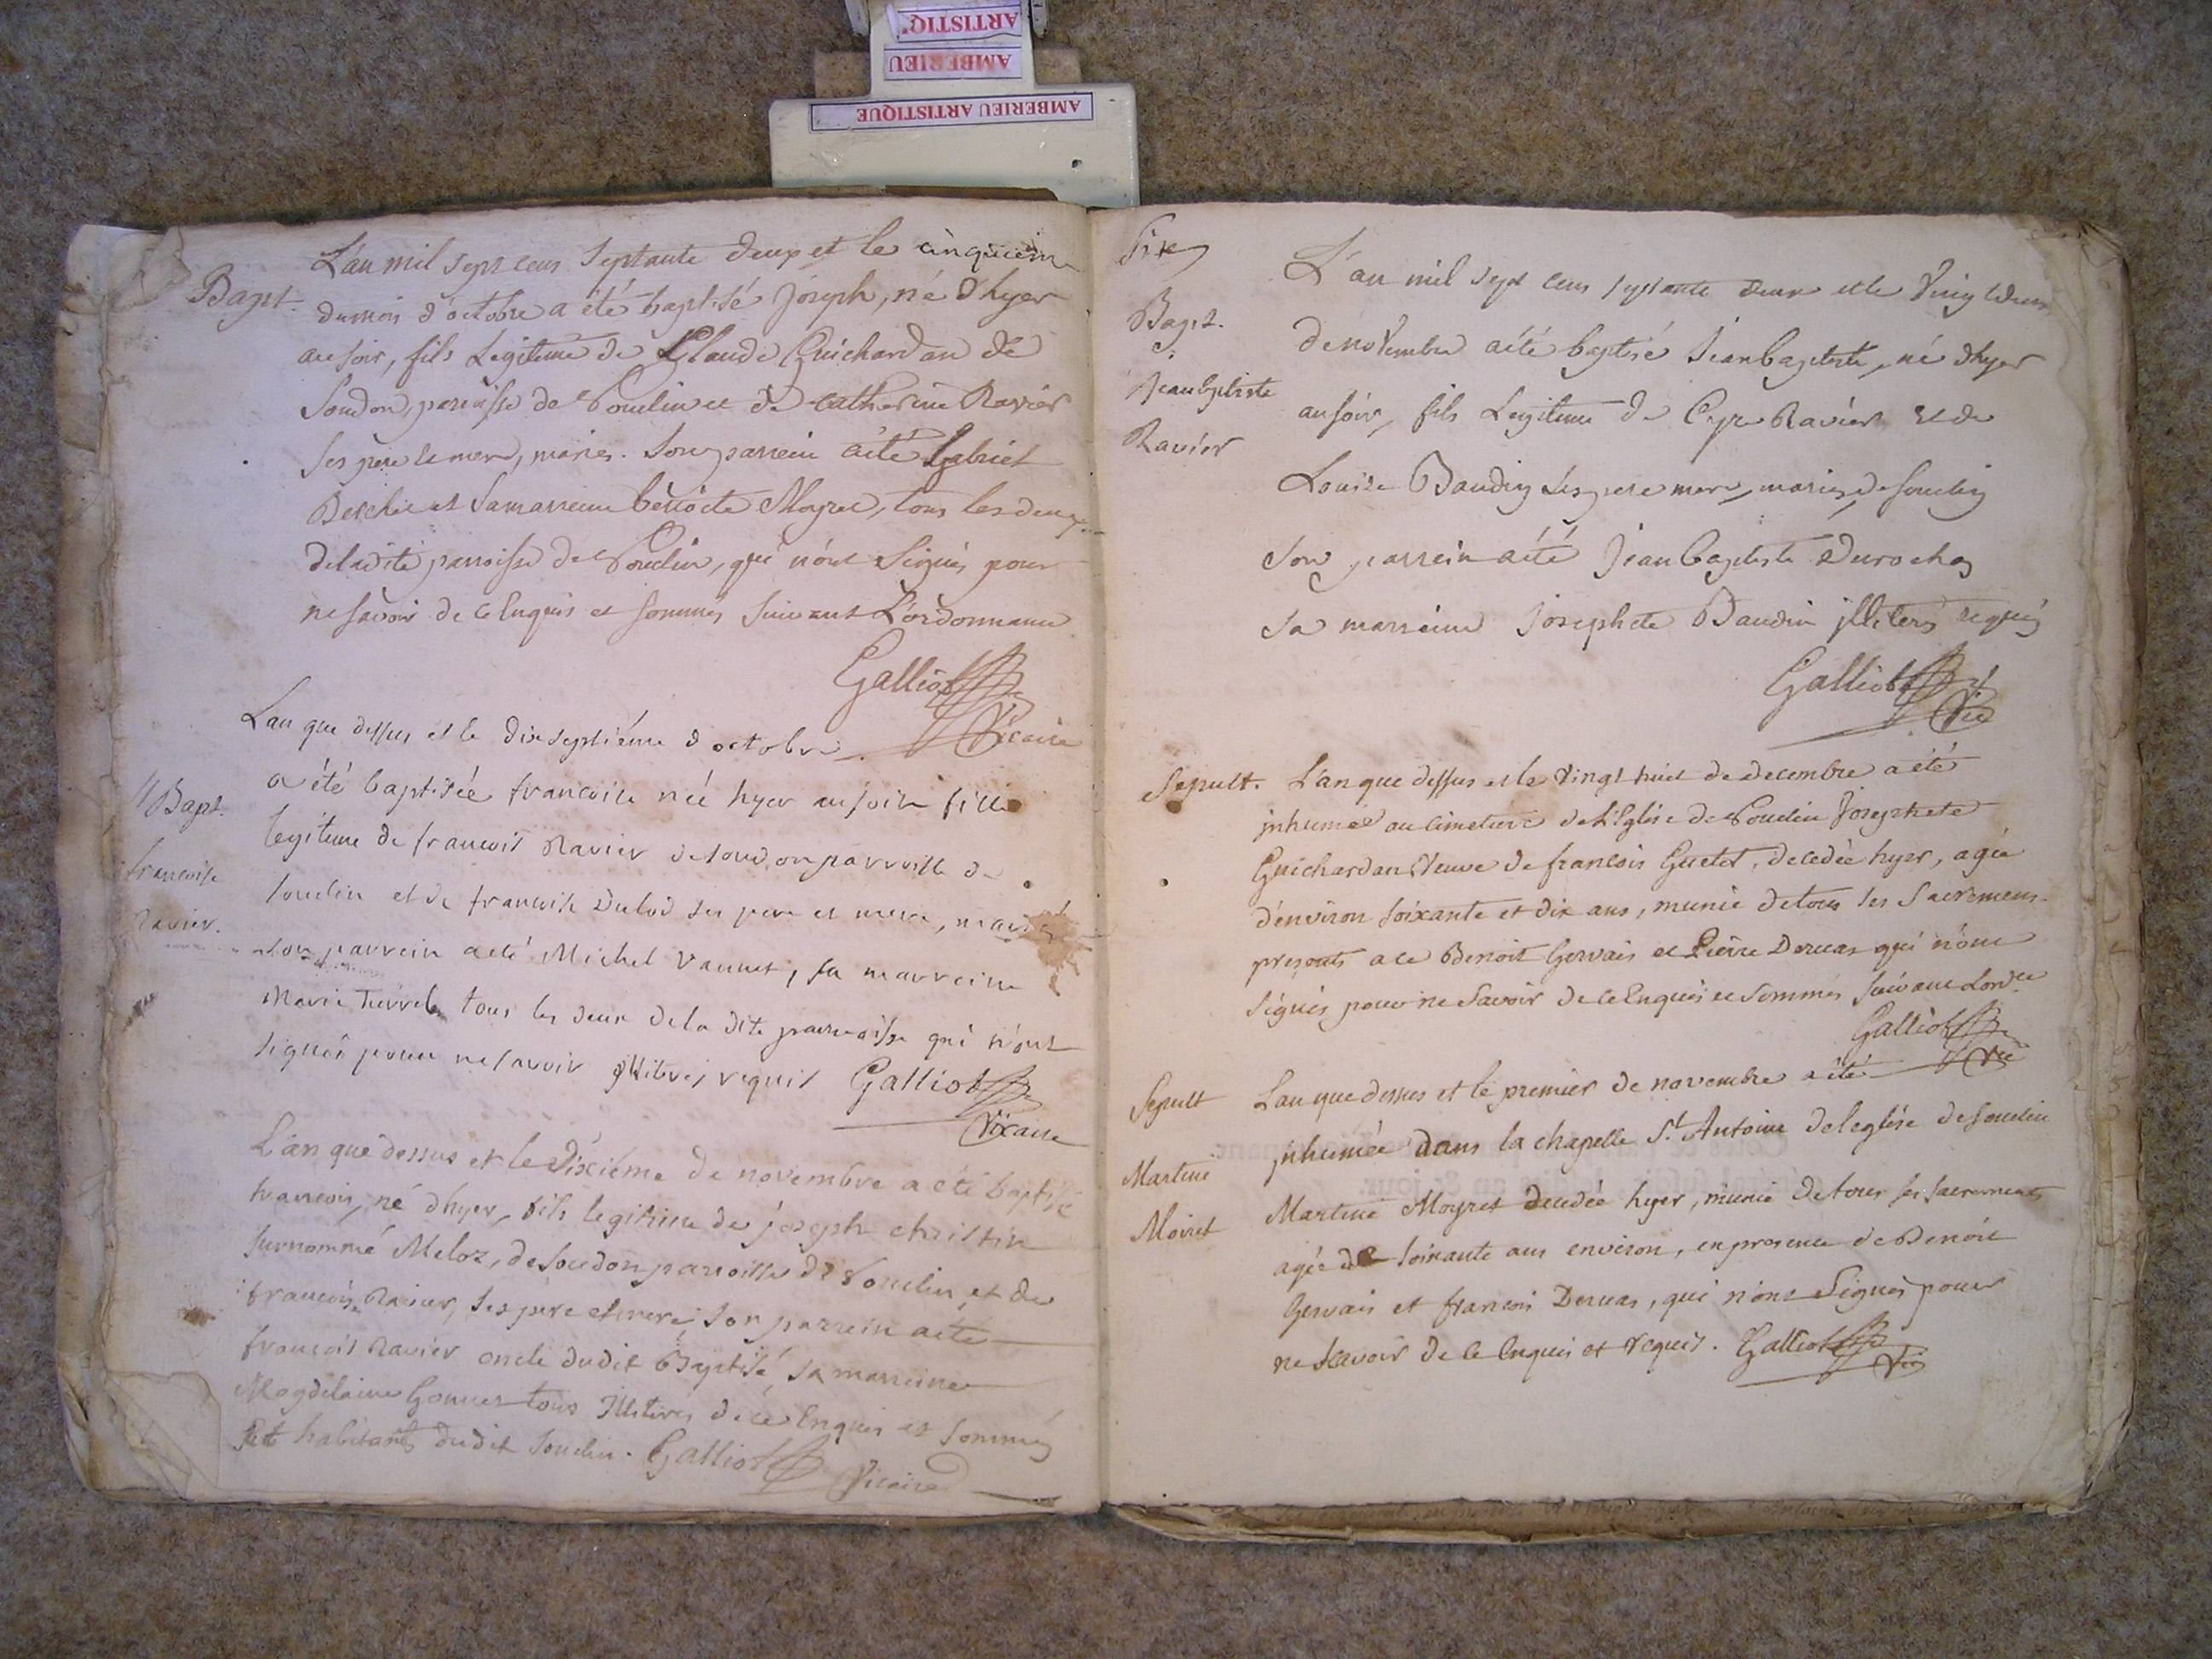 ARTISTIQ
AMBERIEU
AMBERIEU ARTISTIQUE
Bapt.
L'an mil sept cens septante deux et le cinquiem
du mois d'octobre a été baptisé Joseph, né d'hyer
au soir, fils Legitime de Claude Guichardan de
Soudon, paroisse de Souclin et de Catherine Ravier
ses pere et mere, mariés. Son parrein a été Gabriel
et sa marreine benoite Moyret, tous les deux
de la dite parroisse de Souclin, qui n'ont Signés pour
ne savoir de ce Enquis et sommés suivant L'ordonnance
Galliot
Vicaire
L'an que dessus et le dix septiéme d'octobre
// Bapt.
francoise
Ravier.
a été baptisée francoise née hyer au soir fille
legitime de francois Ravier de soudon parroisse de
souclin et de francoise Dulod ses pere et mere, mariés
son parrein a eté Michel Vannet, sa marreine
Marie tous les deux de la dite parroisse qui n'ont
signés pour ne savoir jllitérés requis Galliot
Vicaire
L'an que dessus et le dixiéme de novembre a été baptisé
francois, né d'hyer, fils legitime de joseph christin
surnommé Meloz, de soudon parroisse de Souclin, et de
francoise Ravier, ses père et mere, son parrein a été
francois Ravier oncle dudit Baptisé, sa marreine
Magdelaine Gonnet tous Illitérés de ce Enquis et sommés
et habitants dudit souclin. Galliot
Vicaire
Six
Bapt.
Jeanbptiste
Ravier
L'an mil sept cens septante deux et le vingt deux
de novembre a été baptisé Jean baptiste, né d'hyer
au soir, fils Legitime de Cyre Ravier et de
Louise Baudin ses pere mere, mariés, de souclin
Son parrein a été Jean baptiste Durochas
Sa marreine Josephete Baudin jlliterés requis
Galliot
Vic
Sepult.
L'an que dessus et le vingt huit de decembre a été
jnhumée au cimetiere de L'Eglise de Souclin Josephete
Guichardan Veuve de francois Guetet, decedée hyer, agée
d'environ soixante et dix ans, munie de tous les Sacremens
presents a ce Benoit Gervais et Pierre Deruas qui n'ont
Signés pour ne Savoir de ce Enquis et Sommés suivant Lord.ce
Galliot
Vic
Sepult
Martine
Moiret
L'an que dessus et le premier de novembre a été
jnhumée dans la chapelle S.t Antoine de l'eglise de souclin
Martine Moyret decedée hyer, munie de tous ses sacrements
agée de soixante ans environ, en presence de Benoit
Gervais et francois Deruas, qui n'ont Signés pour
ne scavoir de ce enquis et requis. Galliot
Vic